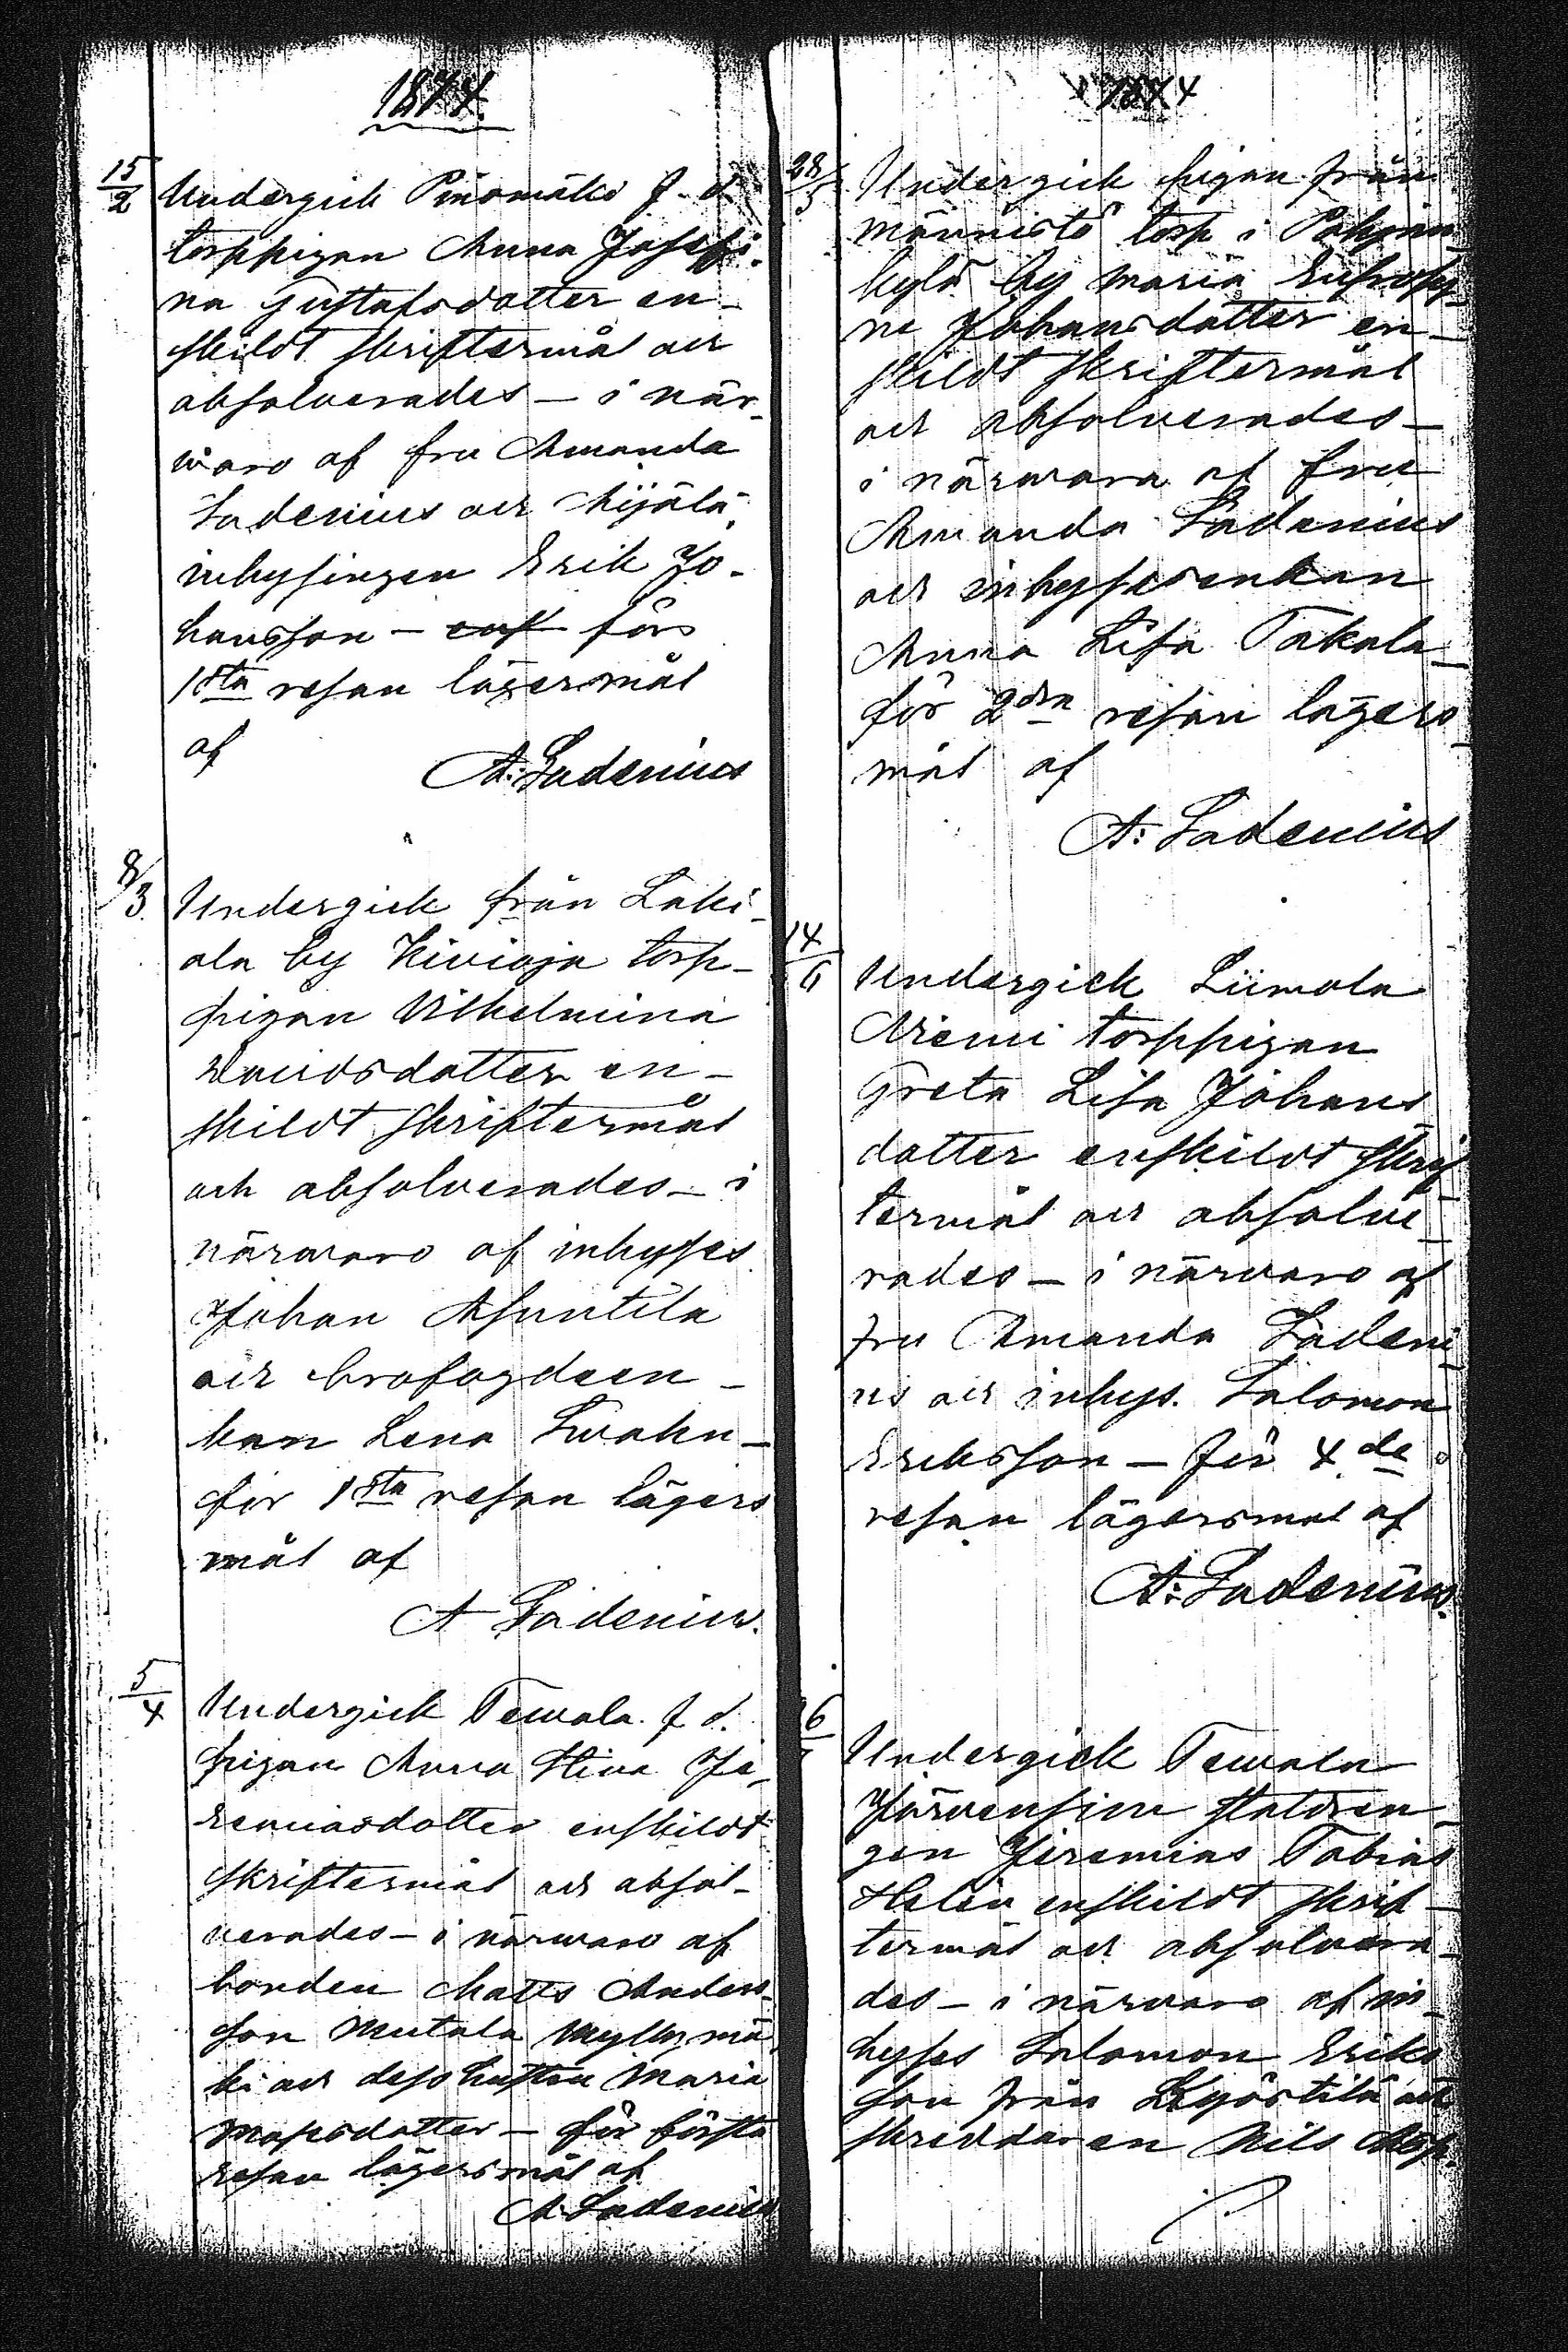 1874.
15/2 Undergick Pinomäki f. d.
torppigan Anna Josefi-
na Gustafsdotter en-
skildt skriftermål och
absolverades – i när-
waro af fru Amanda
Ladenius och Äijälä
inhysingen Erik Jo-
hansson – för
1sta resan lägersmål
af
A: Ladenius
8/3. Undergick från Laki-
ala by Kivioja torp-
pigan Vilhelmina
Davidsdotter en-
skildt skriftermål
och absolverades – i
närwaro af inhyses
Johan Asuntila
och brofogdeen-
kan Lena Swahn –
för 1sta resan lägers
mål af
A Ladenius.
5/4 Undergick Tewala f d.
pigan Anna Stina Je-
remiasdotter enskildt
skriftermål och absol-
verades – i närwaro af
bonden Matts Anders-
son Mutala Myllymä-
ki och dess hustru Maria
Mapsdotter – för första
resan lägersmål af
A Ladenius
1874
28/5 Undergick pigan från
Männistö torp i Pohjan-
kylä by Maria Eufrosy-
ne Johansdotter en-
skildt skriftermål
och absolverades –
i närwara af fru
Amanda Ladenius
och inhysesenkan
Anna Lisa Takala –
för 2dra resan lägers-
mål af
A: Ladenius
14/6 Undergick Liimola
Niemi torppigan
Greta Lisa Johans
dotter enskildt skrif-
termål och absolve-
rades – i närwaro af
fru Amanda Ladeni-
us och inhys. Salomon
Eriksson – för 4de
resan lägersmål af
A: Ladenius.
6 Undergick Tewala
Järwensiwu statdren-
gen Jeremias Tobias
Helén enskildt skrif-
termål och absolvera-
des – i närwaro af in-
hyses Salomon Eriks
son från Kyöstilä och
skreddaren Nils